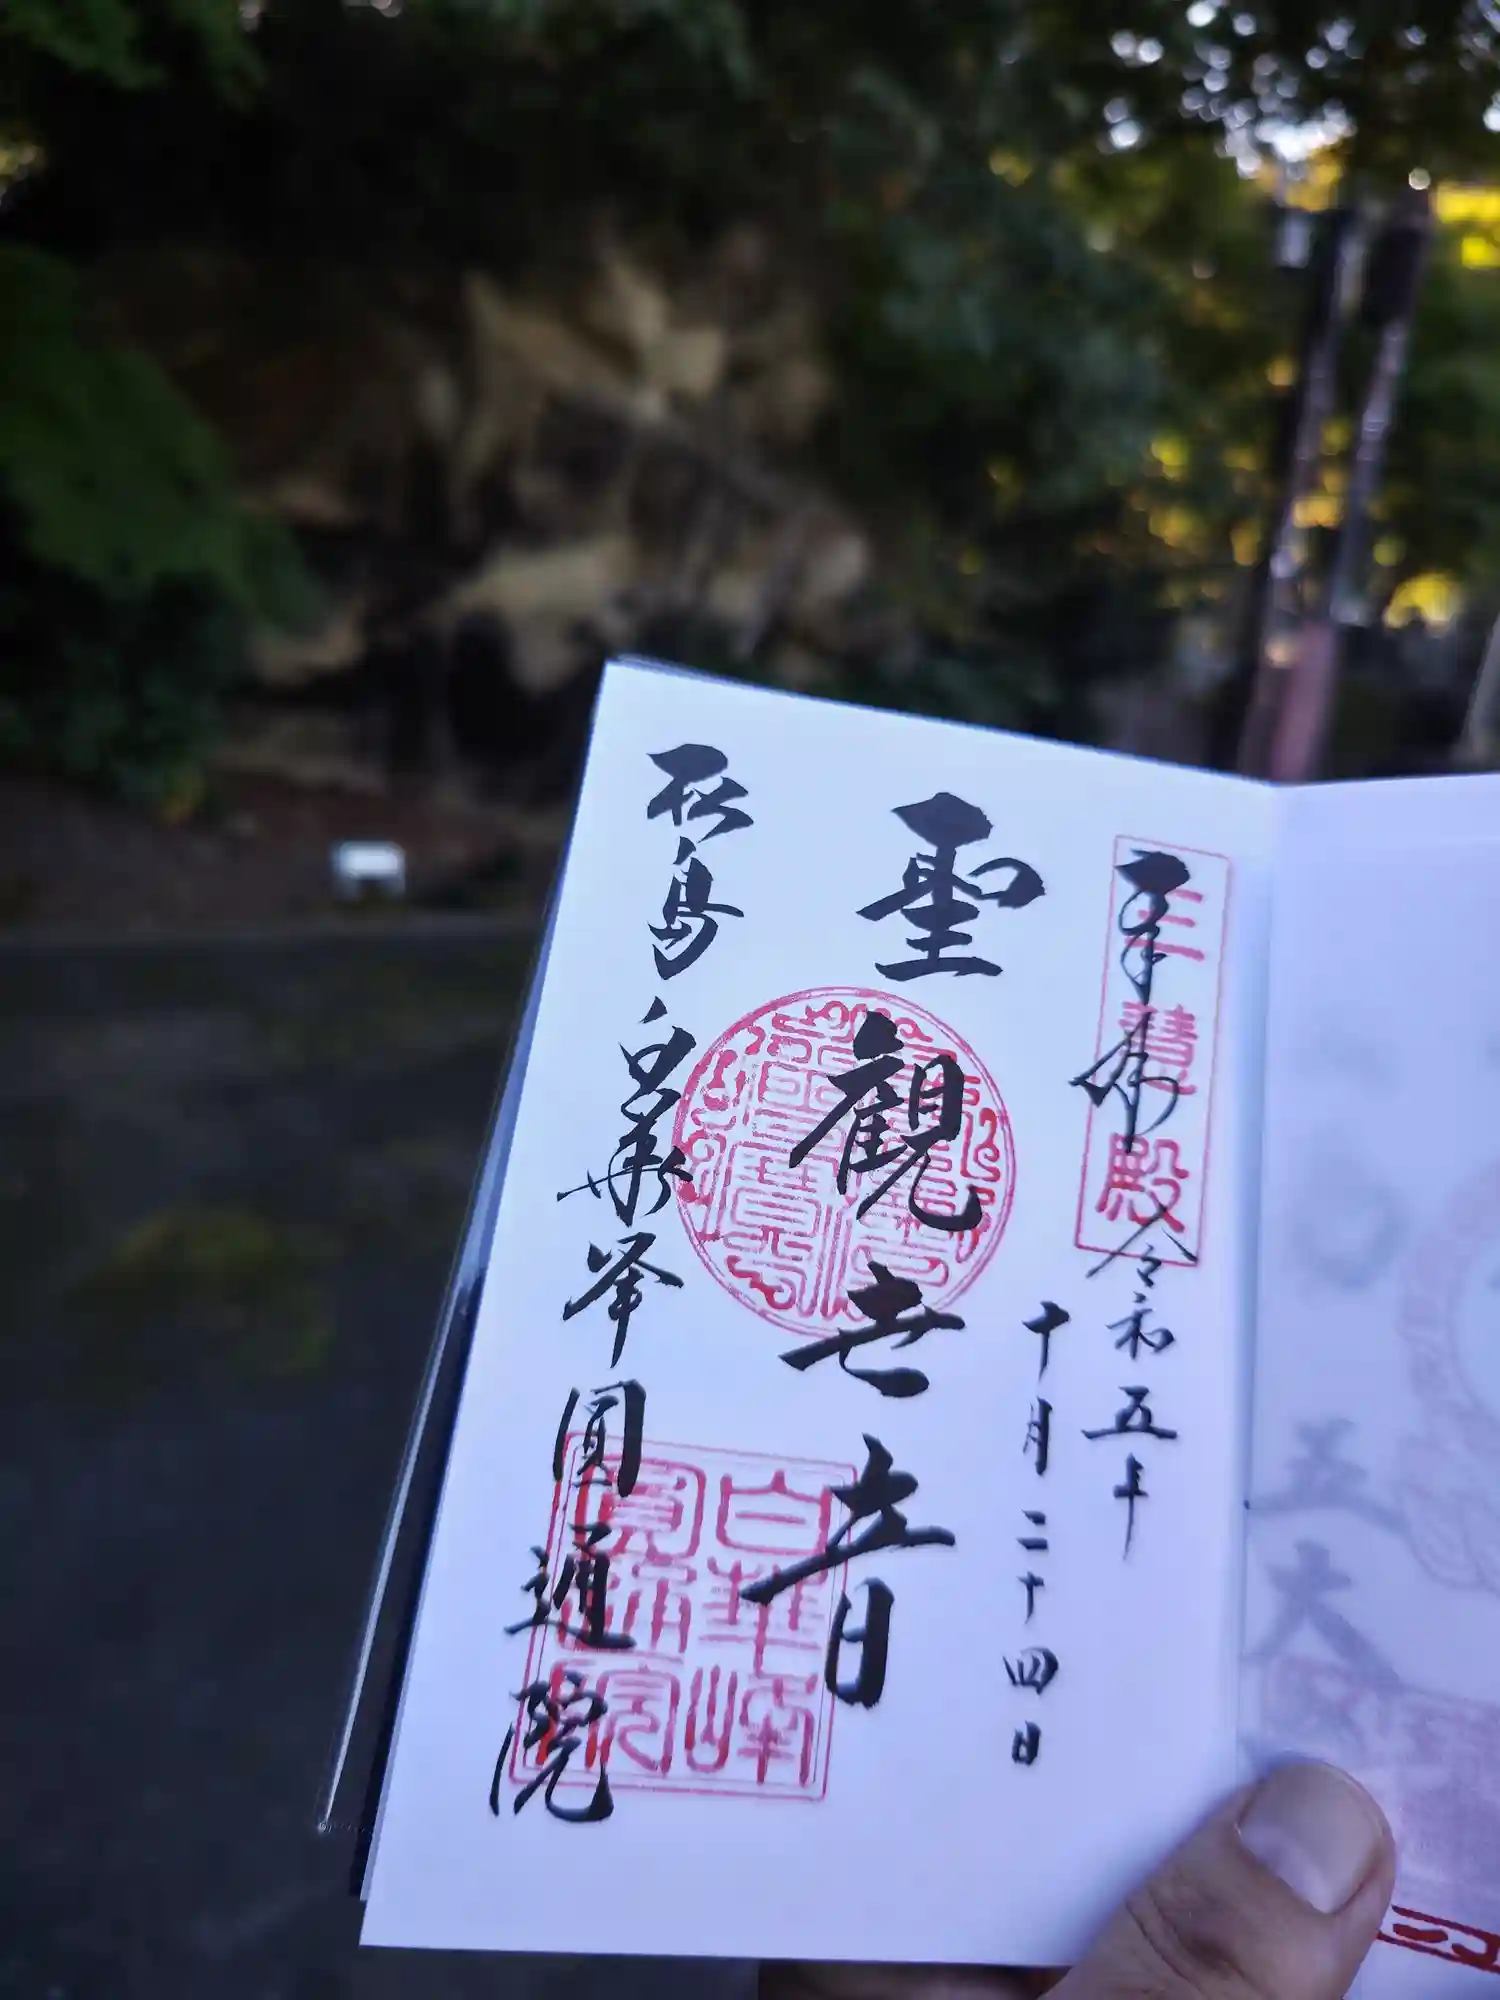 奉拝
三慧殿
令和五年
十月二十四日
聖観世音
松島白華峰圓通院
白華峰
圓通院
五大